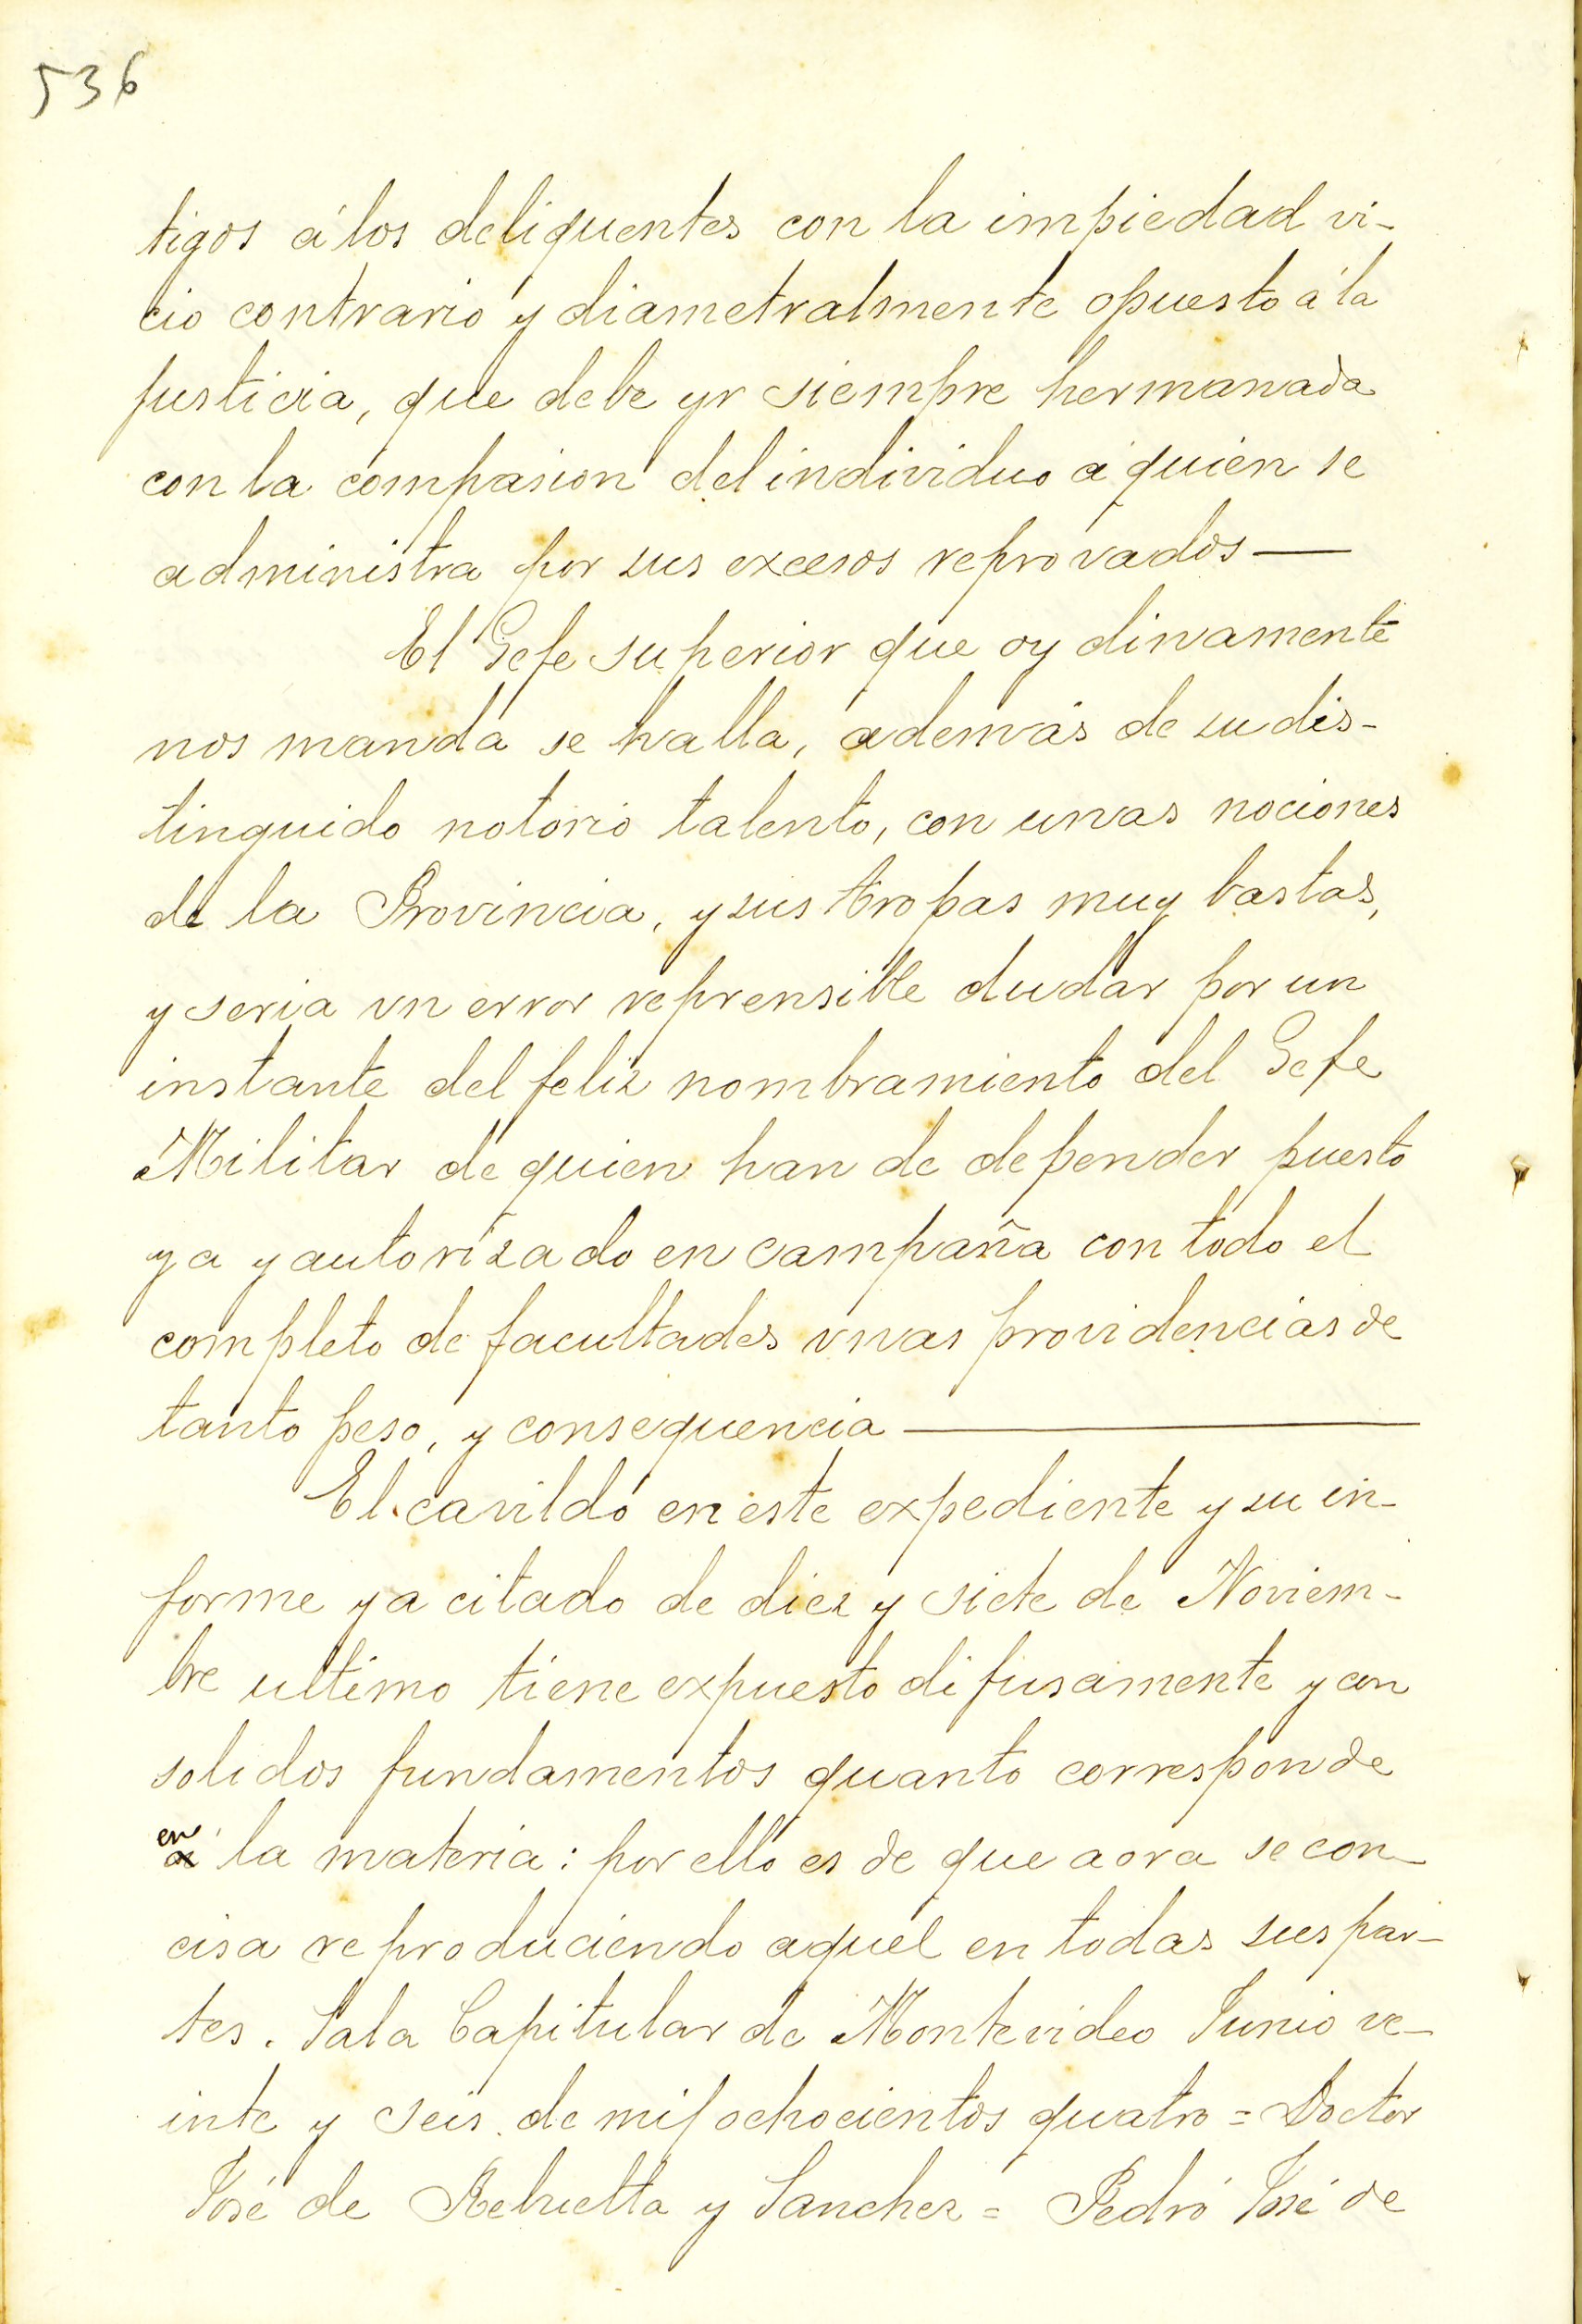 536
tigos á los deliquentes con la impiedad vi-
cio contrario y diametralmente opuesto á la
justicia, que debe yr siempre hermanada
con la compasion del individuo a quien se
administra por sus excesos reprovados —
El Gefe superior que oy dinamente
nos manda se halla, además de su dis-
tinguido notorio talento, con unas nociones
de la Provincia, y sus tropas muy bastas,
y seria vn error reprensible dudar por un
instante del feliz nombramiento del Gefe
Militar de quien han de depender puesto
ya y autorizado en campaña con todo el
completo de facultades vnas providencias de
tanto peso, y consequencia —
El cavildo en este expediente y su in-
forme ya citado de diez y siete de Noviem-
bre ultimo tiene expuesto difusamente y con
solidos fundamentos quanto corresponde
en á la materia: por ello es de que aora se con-
cisa reproduciendo aquel en todas sus par-
tes. Sala Capitular de Montevideo Junio ve-
inte y seis de mil ochocientos quatro = Doctor
José de Rebuelta y Sanchez = Pedro José de